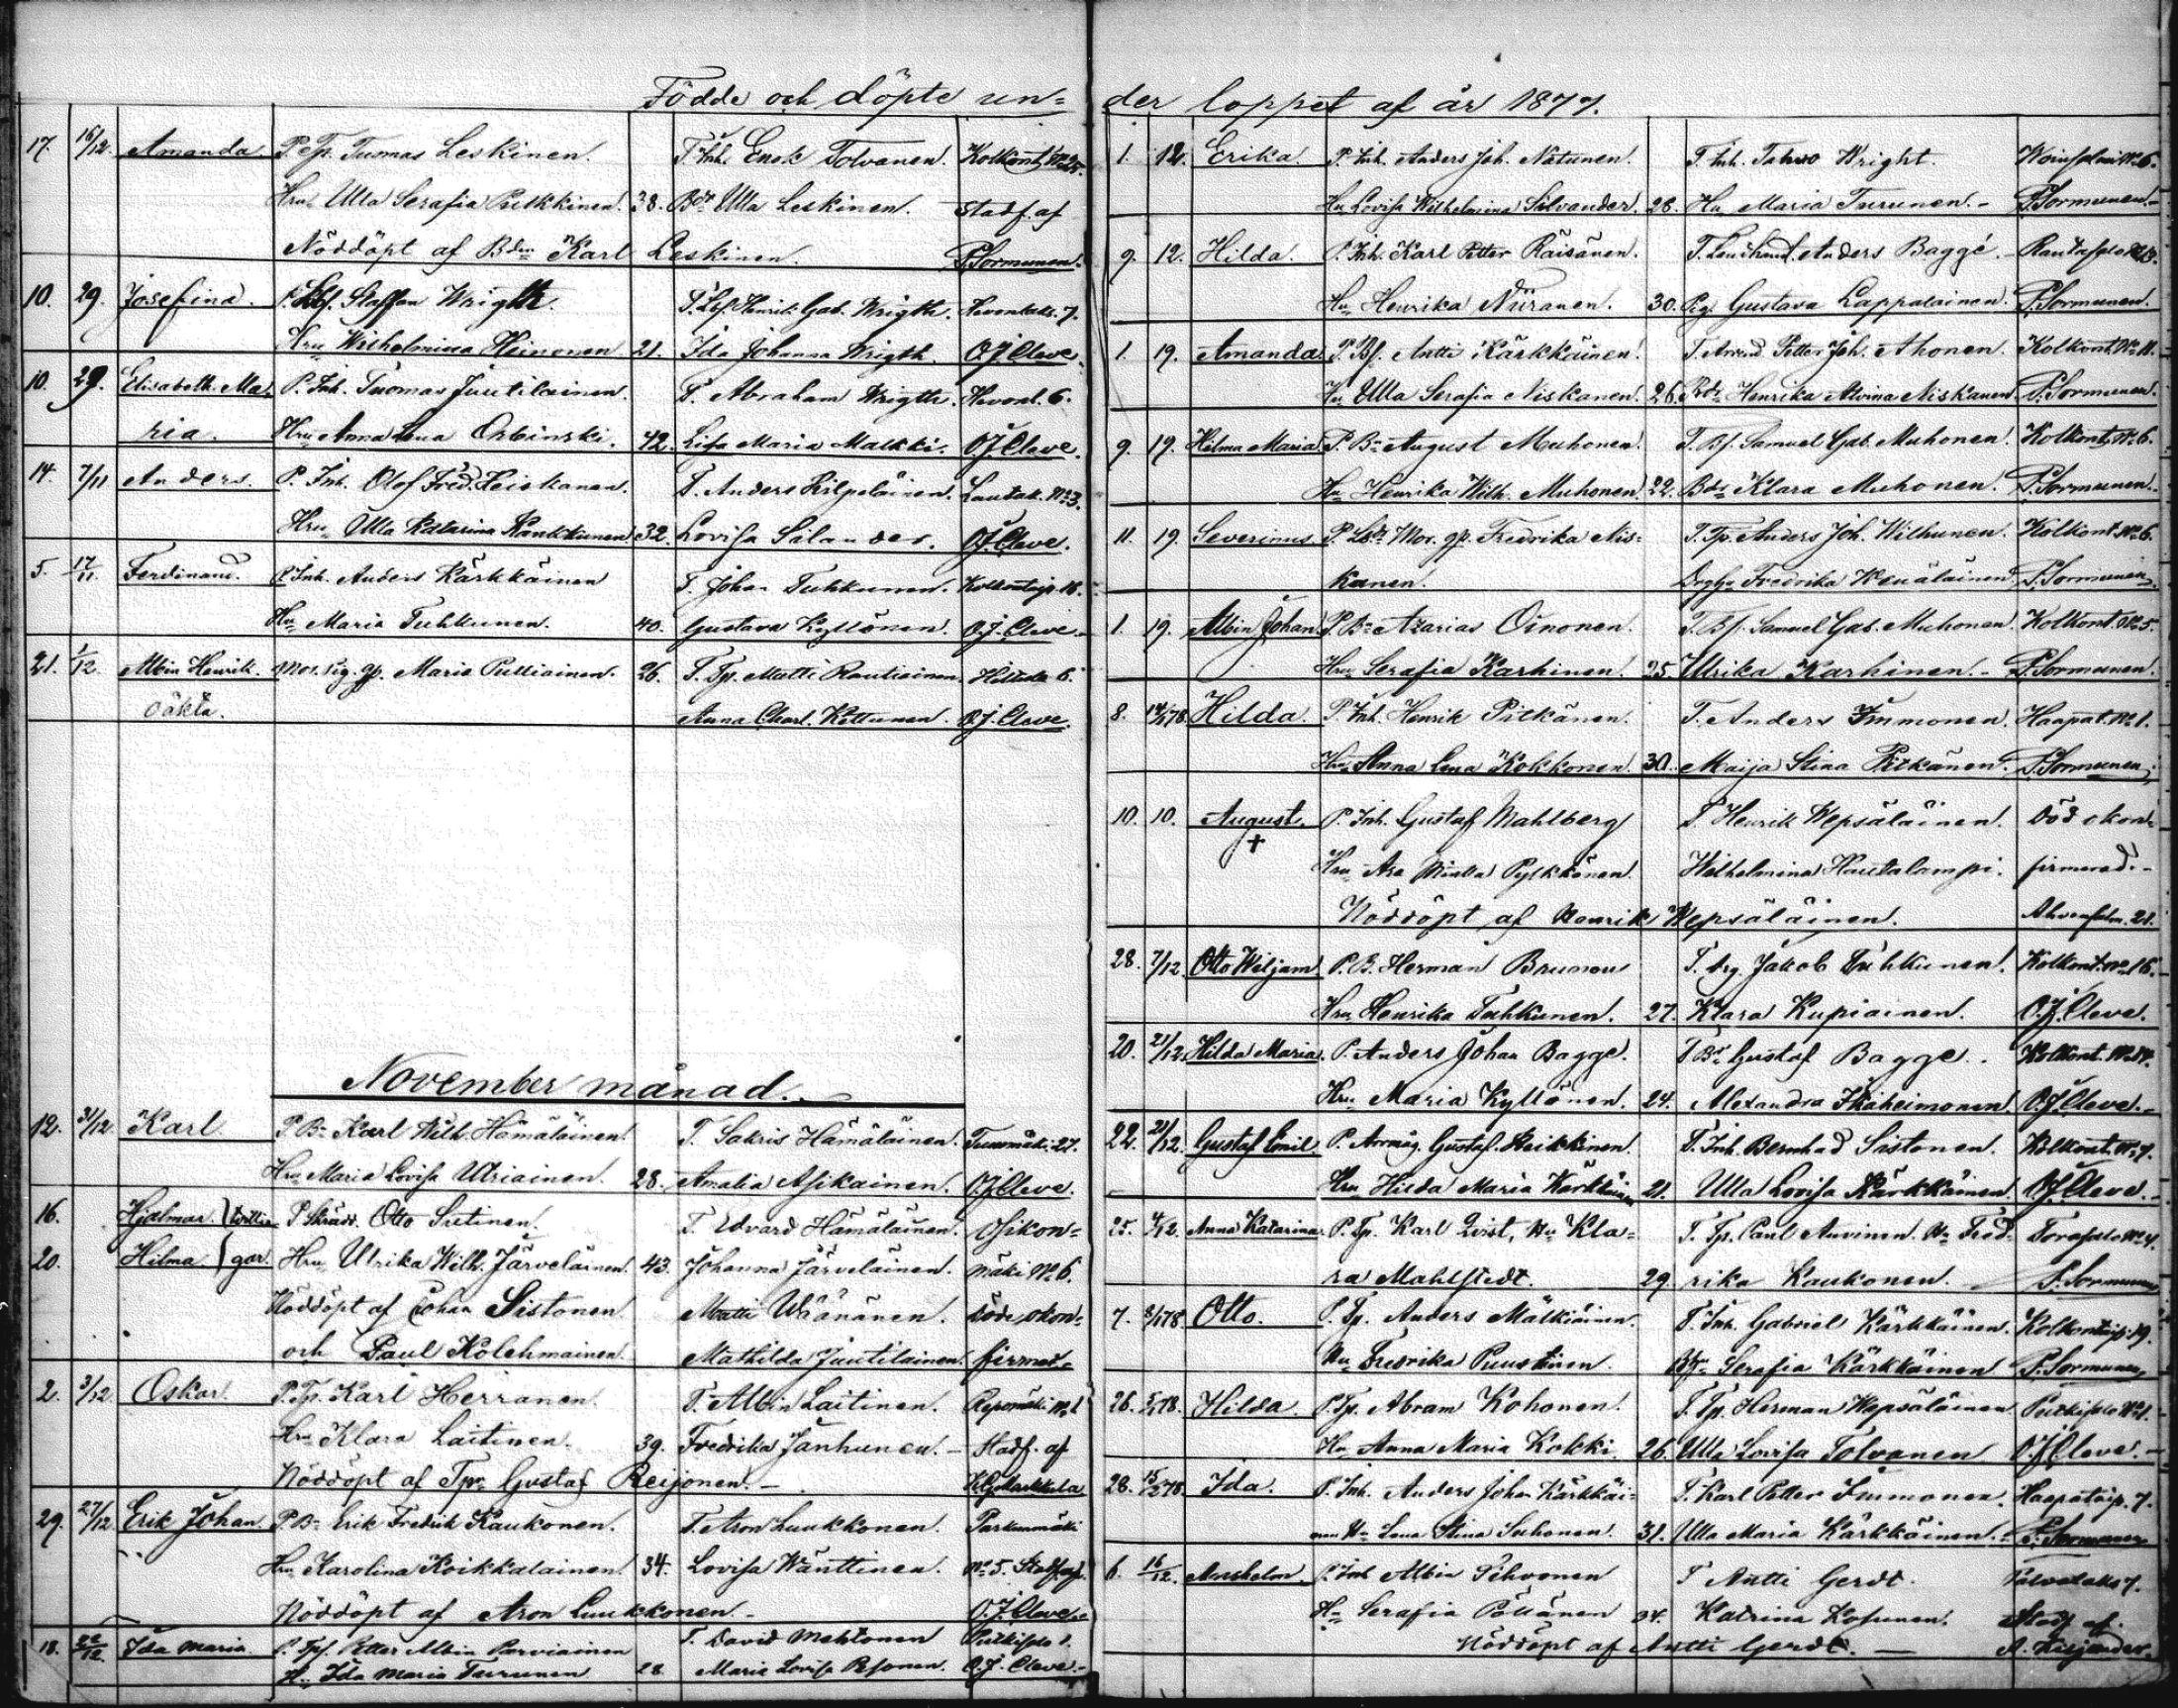 Födde och döpte un= der loppet af år 1877.
17. 16/12. Amanda. P. Tuomas Leskinen. T. Inh. Enok Tolvanen. Kolkont. No 25.
Hru Ulla Serafia Pulkkinen. 38. Ulla Leskinen. Stadf. af
Nöddöpt af Karl Leskinen. P. Sormunen.
10. 29. Josefina. Staffan Wrigth. T. Henrik Gab. Wrigth. 7.
Hru Wilhelmina Heinonen 21. Ida Johanna Wrigth. O.J. Cleve.
10. 29. Elisabeth Ma- P. Inh. Tuomas Juutilainen. T. Abraham Wrigth. Hevonl. 6.
ria. Hru Anna Lena Orbinski. 42. Lisa Maria Malkki. O.J. Cleve.
14. 7/11 Anders. P. Inh. Olof Fred. Heiskanen. T. Anders Kilpeläinen. Lautak. No 3.
Hru Ulla Katarina Kaukkunen 32. Lovisa Silander. O.J. Cleve.
5. 17/11. Ferdinand. P. Inh. Anders Kärkkäinen T. Johan Tuhkunen. Kolkontaip. 16.
Hu Maria Tuhkunen. 40. Gustava Kyllönen. O.J. Cleve
21. 1/12. Albin Henrik. Mor. Pig. gp. Maria Pulliainen. 26. T. Tp. Matti Rautiainen. 6.
oäkta. Anna Charl. Kettunen. O.J. Cleve.
November månad.
12. 31/12 Karl. P. Bn Karl Wilh. Hämäläinen. T. Sakris Hämäläinen. Tummäki. 27.
Hru Maria Lovisa Uriainen. 28. Amalia Asikainen. O.J. Cleve.
16. Hjalmar } tvillin- P. Skrädd. Otto Sutinen. T. Edvard Hämäläinen. Osikon-
20. Hilma } gar. Hru Ulrika Wilh. Järveläinen. 43. Johanna Järveläinen. mäki No 6.
Nöddöpt af Johan Sistonen Matti Wäänänen. Döde, okon-
och Paul Kolehmainen. Mathilda Juutilainen. firmer-
2. 3/12 Oskar. P. Tp. Karl Herranen. T. Albin Laitinen. Repomäki No 1
Hru Klara Laitinen. 39. Fredrika Janhunen. Stadf. af
Nöddöpt af Tpr Gustaf Reijonen.
29. 27/12. Erik Johan. P. Bn Erik Fredrik Kaukonen. T. Aron Luukkonen. Parkunmäki
Hru Karolina Koikkalainen. 34. Lovisa Wänttinen. No 5. Stadf. af
Nöddöpt af Aron Luukkonen. O.J. Cleve.
18. Ida Maria. P. Petter Albin Parviainen T. David Mehtonen 1.
H. Ida Maria Turunen 28 Maria Lovisa Pesonen. O.J. Cleve.
1. 12. Erika. P. Inh. Anders Joh. Natunen. T. Inh. Tahvo Wright. No 6.
Hu Lovisa Wilhelmina Silvander. 28. Hu Maria Turunen. P. Sormunen.
9. 12. Hilda. P. Inh. Karl Petter Räisänen. T. Anders Baggé.
Hu Henrika Niiranen. 30. Pig. Gustava Lappalainen. P. Sormunen.
1. 19. Amanda. P. Bf. Antti Kärkkäinen. T. Petter Joh. Ahonen. Kolkont. No 11.
Hu Ulla Serafia Niskanen. 26. Henrika Alvina Niskanen. P. Sormunen.
9. 19. Hilma Maria P. Bn August Muhonen. T. Bf. Samuel Gab. Muhonen. Kolkont. No 6.
Hu Henrika Wilh. Muhonen. 22. Klara Muhonen. P. Sormunen.
11. 19. Severinus P. Mor. gp. Fredrika Nis- T. Tp. Anders Joh. Wilhunen. Kolkont. No 6.
kanen. Fredrika Wenäläinen. P. Sormunen.
1. 19. Albin Johan P. Bn Azarias Oinonen. T. Bf. Samuel Gab. Muhonen. Kolkont. No 5.
Hru Serafia Karhinen. 25. Ulrika Karhinen. P. Sormunen.
8. Hilda. P. Inh. Henrik Pitkänen. T. Anders Immonen. Haapat. No 1.
Hru Anna Lena Kokkonen. 30. Maija Stina Pitkänen. P. Sormunen
10. 10. August. P. Inh. Gustaf Mahlberg T. Henrik Wepsäläinen. Död okon-
+ Hru Pylkkönen. Wilhelmina Hautalampi. firmerad.
Nöddöpt af Henrik Wepsäläinen. 21.
28. 7/12. Otto Wiljam P. B. Herman Brunou T. Drg. Jakob Tuhkunen. Kolkont. No 16.
Hru Henrika Tuhkunen. 27. Klara Kupiainen. O.J. Cleve.
20. 21/12. Hilda Maria. P. Anders Johan Bagge. T. Gustaf Bagge. Kolkont. No 14.
Hru Maria Kyllönen. 24. Alexandra Ikäheimonen. O.J. Cleve.
22. 21/12. Gustaf Emil P. Gustaf Heikkinen. T. Inh. Bernhad Sistonen. Kolkont. No 7.
Hru Hilda Maria Kärkkäinen 21. Ulla Lovisa Kärkkäinen. O.J. Cleve.
25. 4/12. Anna Katarina P. Tp. Karl Qvist, Hu Kla- T. Tp. Paul Auvinen. Hu Fred- No 4.
ra Mahlstedt. 29. rika Kaukonen. P. Sormunen
7. Otto. P. Tp. Anders Mälkiäinen. T. Inh. Gabriel Kärkkäinen. Kolkontaip. 19.
Hu Fredrika Puustinen. Serafia Kärkkäinen P. Sormunen
26. Hilda. P. Tp. Abram Kohonen. T. Tp. Herman Wepsäläinen No 1.
Hu Anna Maria Kokki. 26. Ulla Lovisa Tolvanen O.J. Cleve.
28. Ida. P. Inh. Anders Johan Kärkkäi- T. Karl Petter Immonen. Haapataip. 7.
nen Hu Lena Stina Suhonen. 31. Ulla Maria Kärkkäinen. P. Sormunen
6. 16/12. Anshelm. P. Inh Albin Sihvonen T Antti Gerdt. 7.
Hu Serafia Pöllänen 34. Katrina Kosunen. Stadf. af
Nöddöpt af Antti Gerdt.